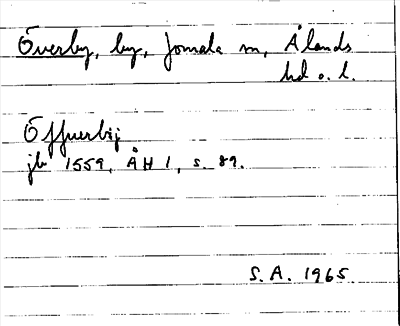 Överby, by, Jomala sn, Ålands
hd o. l.
Öffuerbij
jb 1559, ÅH 1, s. 89.
S.A. 1965